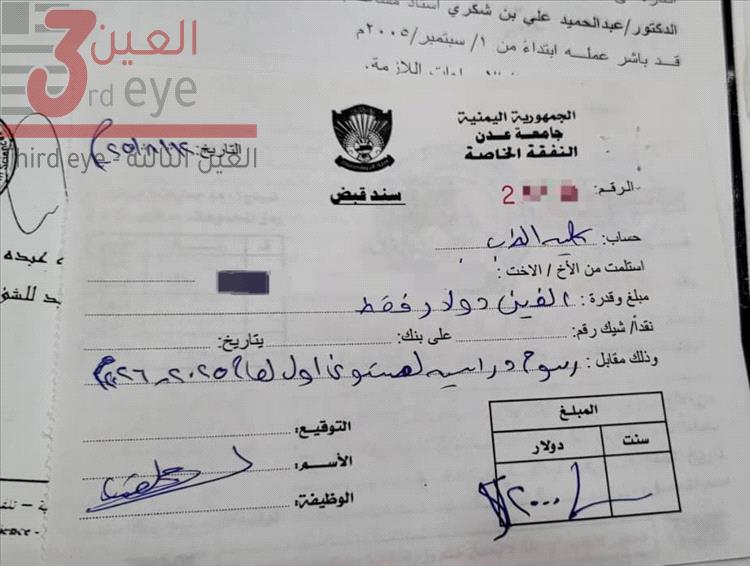 الدكتور/عبدالحميد علي بن شكري أستاذ
قد باشر عمله ابتداءً من ١/ سبتمبر/٢٠٠٥م
اللازمة.
العين
3rd eye
العين الثالثة third eye
الجمهورية اليمنية
جامعة عدن
النفقة الخاصة
التاريخ:
سند قبض
الرقم: 2
حساب: كلية الطب
استلمت من الأخ / الاخت:
مبلغ وقدرة: الفين دولار فقط
نقداً/ شيك رقم: على بنك: بتاريخ:
وذلك مقابل: رسوم دراسية لمستوى اول لعام ٢٠٢٥-٢٠٢٦م
المبلغ
سنت دولار
٢٠٠٠
التوقيع:
الأسم:
الوظيفة:
عبده